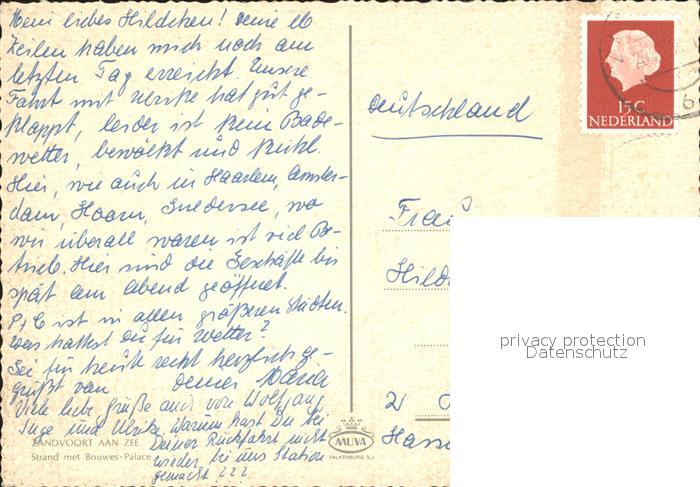 Mein liebes Hildchen! Deine lb
Zeilen haben mich noch am
letzten Tag erreicht. Unsere
Fahrt mit Ulrike hat gut ge-
klappt, leider ist kein Bade-
wetter, bewölkt und kühl.
Hier, wie auch in Haarlem, Amster-
dam, Hoorn, Suedersee, wo
wir überall waren ist viel Be-
trieb. Hier sind die Geschäfte bis
spät am Abend geöffnet.
P+C ist in allen größeren Städten.
Was hattest Du für Wetter?
Sei für heute recht herzlich ge-
grüßt von Deiner Maria
Viele liebe Grüße auch von Wolfgang
Inge und Ulrike. Warum hast Du bei
Deiner Rückfahrt nicht
wieder bei uns Station
gemacht ???
ZANDVOORT AAN ZEE
Strand met Bouwes-Palace
MUVA
VALKENBURG
15C
NEDERLAND
Deutschland
Frau
Hild
2
Hass
privacy protection
Datenschutz